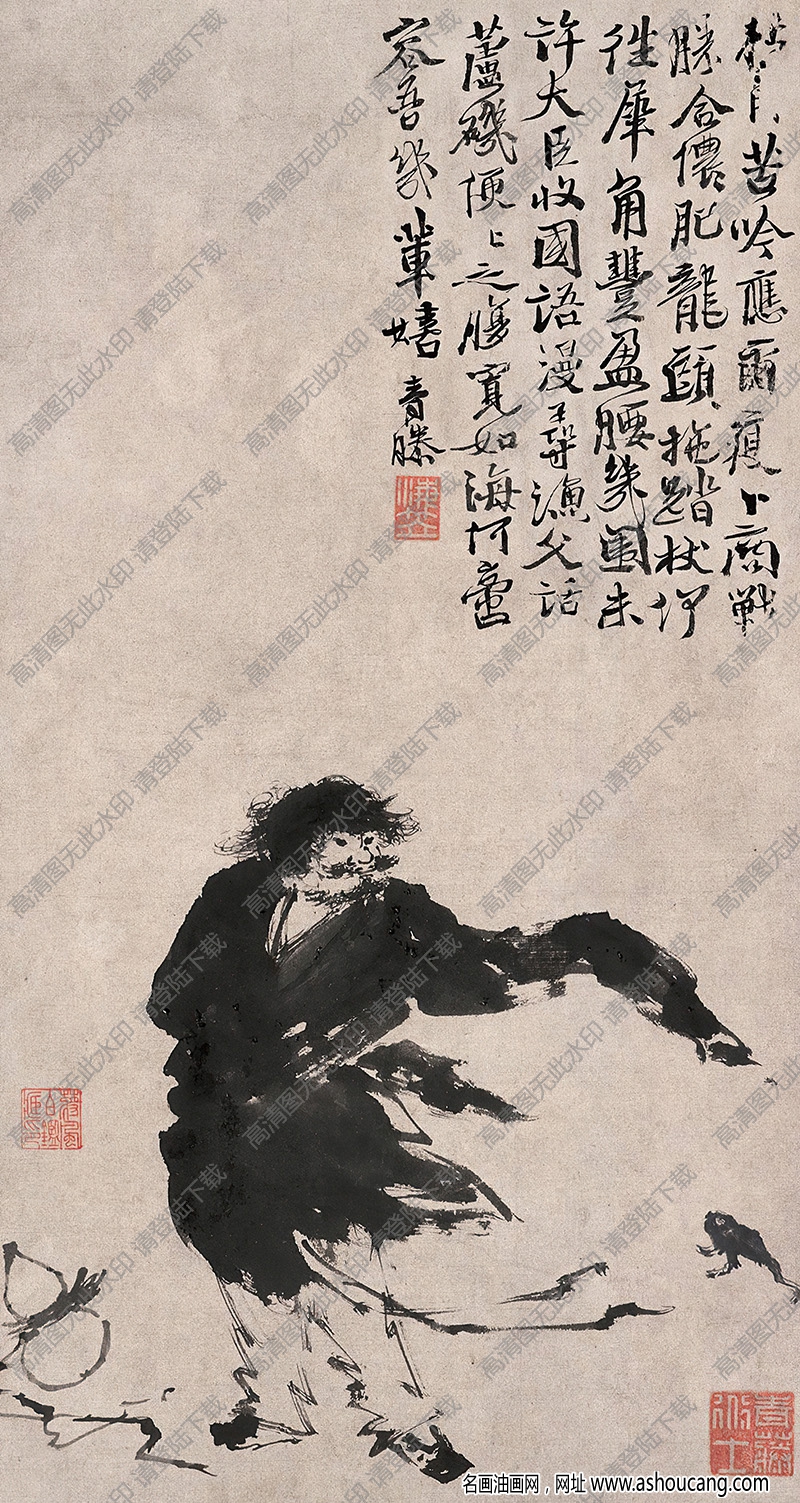 苦吟應爾瘦卜商戰
勝合儂肥龍頭拖踏杖何
徃犀角豐盈腰幾圍未
許大臣收國語漫尋漁父話
蘆磯便上之腹寬如海何啻
容吾幾輩嬉
青藤
青藤
高清图无此水印 请登陆下载
名画油画网，网址 www.ashoucang.com